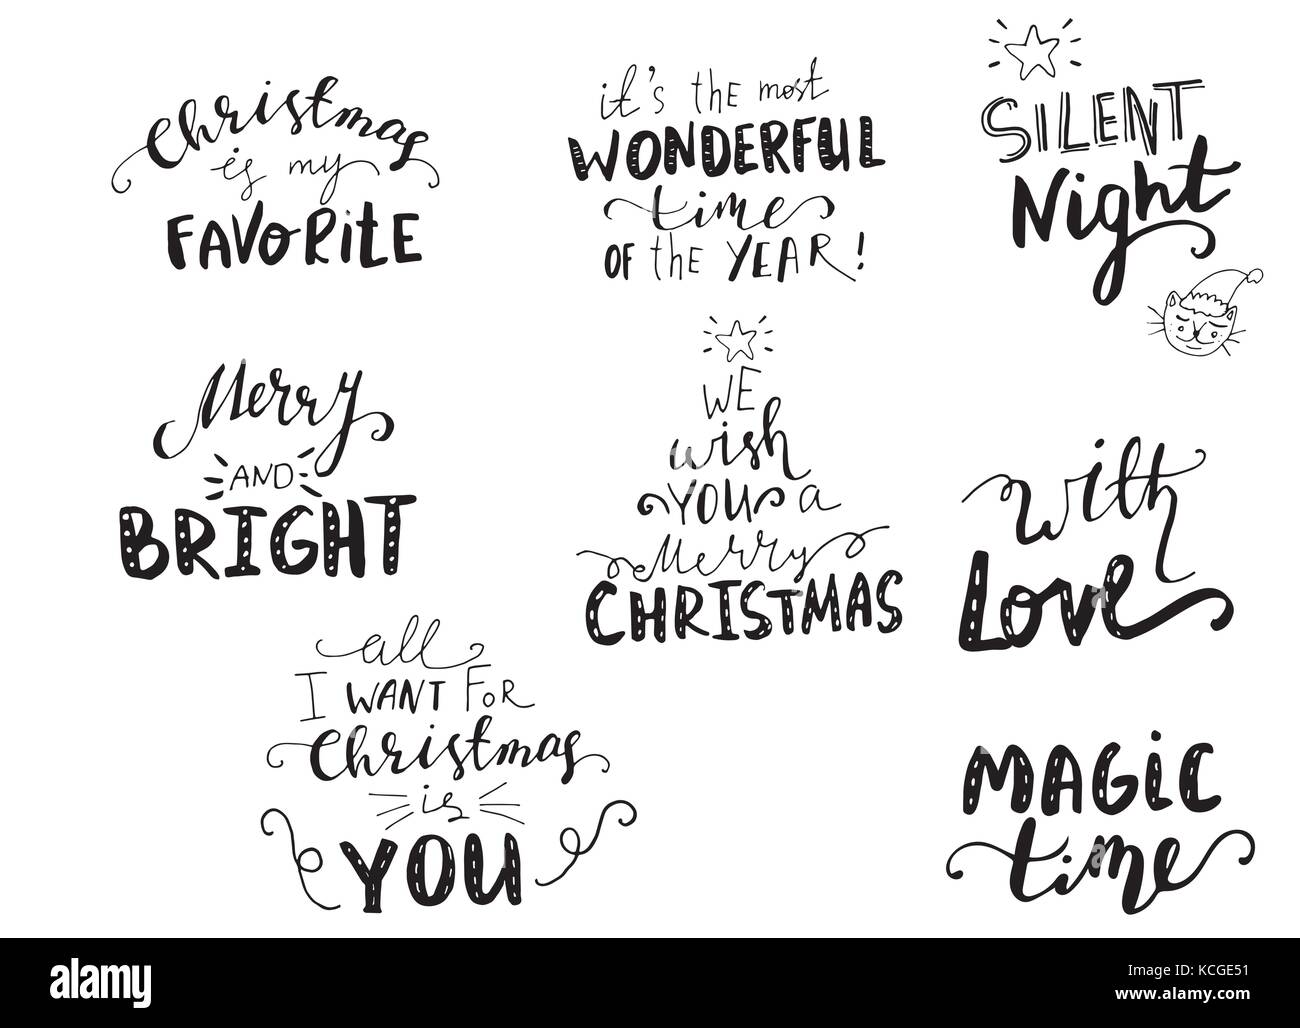 Christmas
is my
FAVORITE
it's the most
WONDERFUL
time
OF the YEAR!
SILENT
Night
Merry
AND
BRIGHT
WE
wish
YOU a
Merry
CHRISTMAS
with
Love
all
I WANT FOR
Christmas
is
YOU
MAGIC
time
alamy
Image ID: KCGE51
www.alamy.com